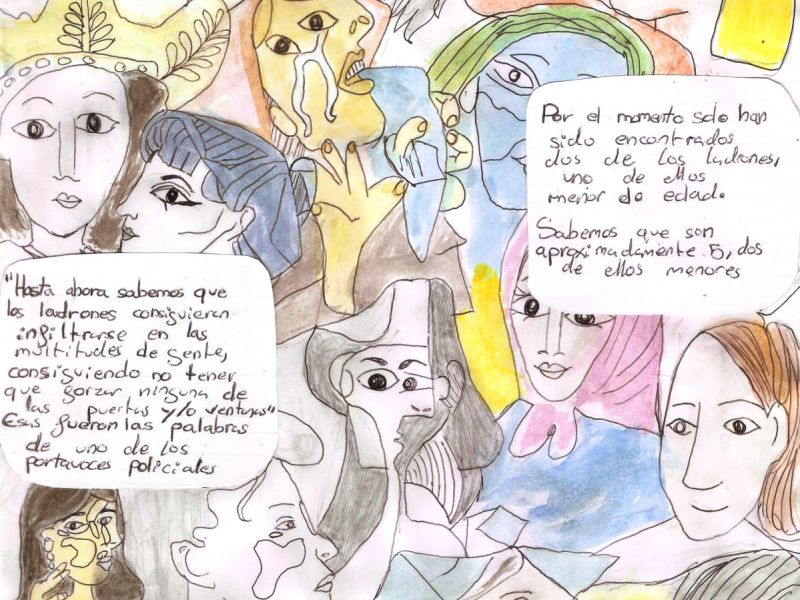 "Hasta ahora sabemos que
los ladrones consiguieron
infiltrarse en las
multitudes de gente,
consiguiendo no tener
que forzar ninguna de
las puertas y/o ventanas"
Esas fueron las palabras
de uno de los
portavoces policiales
Por el momento solo han
sido encontrados
dos de los ladrones,
uno de ellos
menor de edad.
Sabemos que son
aproximadamente 5, dos
de ellos menores